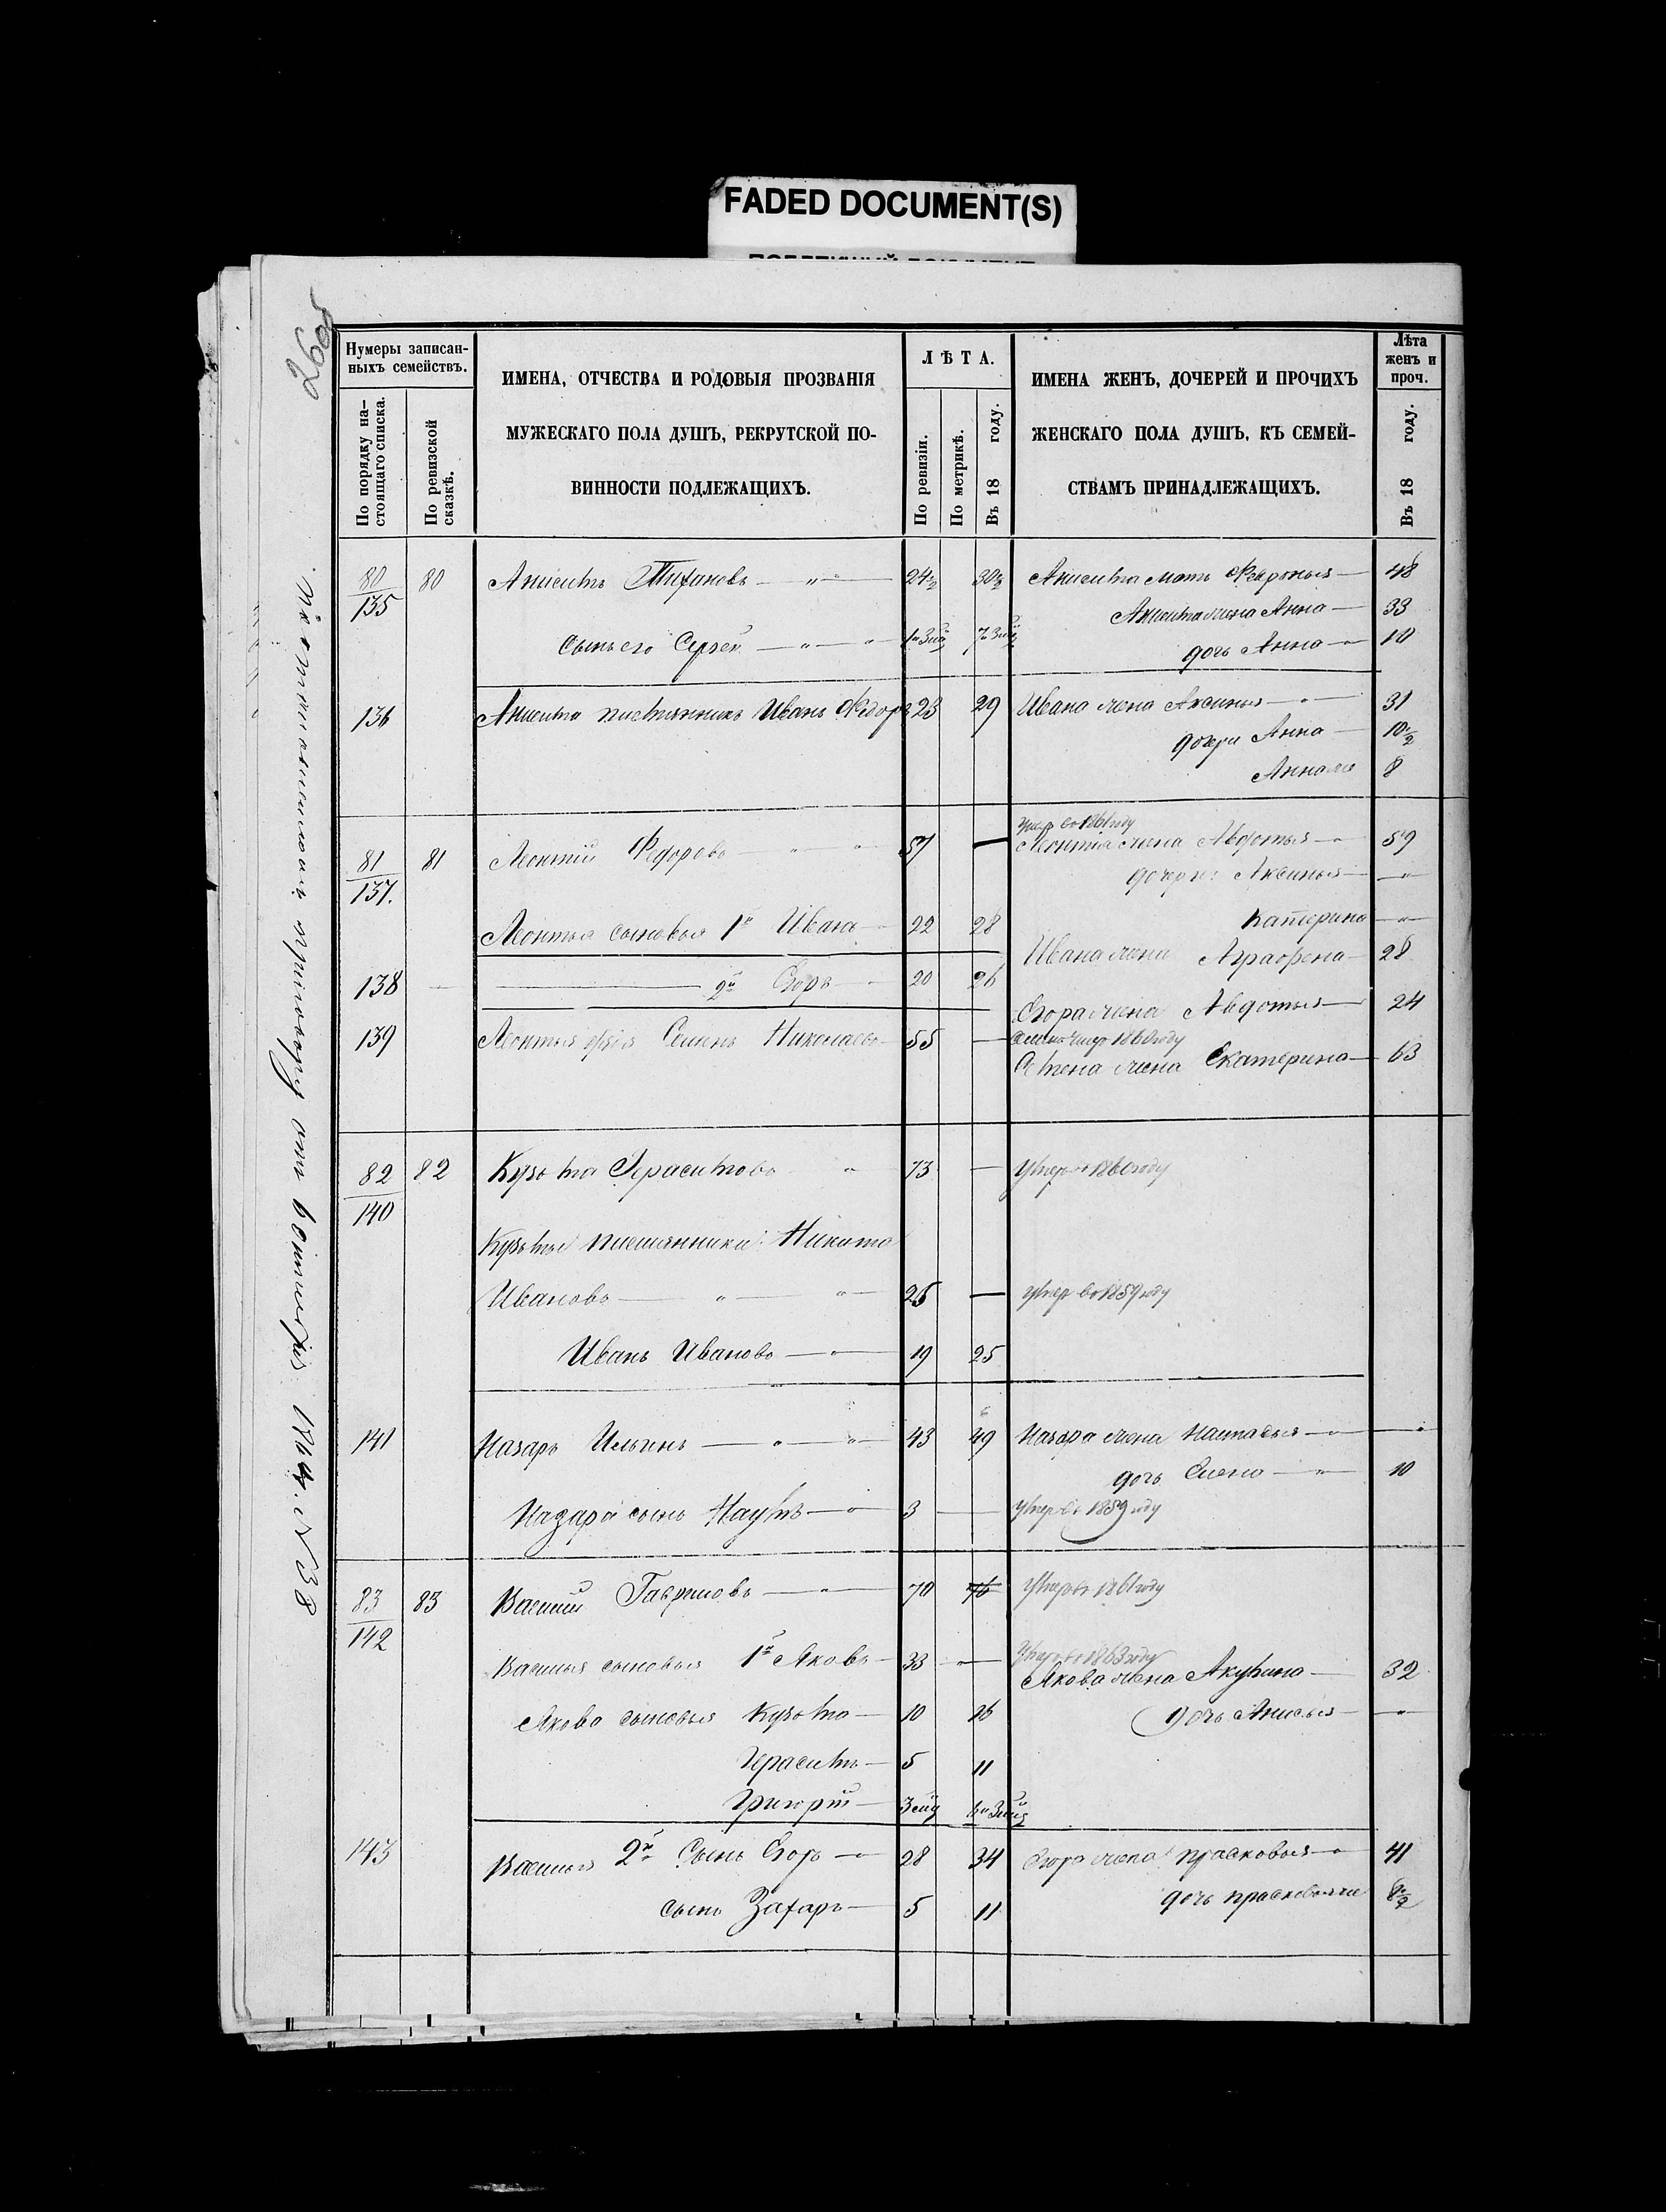 FADED DOCUMENT(S)
260
Нумеры записан-
ныхъ семействъ.
По порядку на-
стоящаго списка.
По ревизской
сказкѣ.
ИМЕНА, ОТЧЕСТВА И РОДОВЫЯ ПРОЗВАНІЯ
МУЖЕСКАГО ПОЛА ДУШЪ, РЕКРУТСКОЙ ПО-
ВИННОСТИ ПОДЛЕЖАЩИХЪ.
ЛѢТА.
По ревизіи.
По метрикѣ.
Въ 18 году.
ИМЕНА ЖЕНЪ, ДОЧЕРЕЙ И ПРОЧИХЪ
ЖЕНСКАГО ПОЛА ДУШЪ, КЪ СЕМЕЙ-
СТВАМЪ ПРИНАДЛЕЖАЩИХЪ.
Лѣта
женъ и
проч.
Въ 18 году.
80/135 80 Анисимъ 24½ 30½ Анисима мать 48
Анисима жена Анна 33
Сынъ его Сергей дочь Анна 10
136 Анисима племянникъ Иванъ Федор 23 29 Ивана жена Аксинья 31
дочери Анна 10½
Анна же 8
умер въ 1861 году
81/137. 81 Леонтій Федоровъ 57 — Леонтія жена Авдотья 59
дочери: Аксинья
Катерина
Леонтья сыновья 1й Иванъ 22 28
Ивана жена Аграфена 28
138 2й Егоръ 20 26
Егора жена Авдотья 24
139 Леонтья Семенъ Николаевъ 55 — умер 1860 году
Семена жена Екатерина 63
82/140 82 Кузьма Герасимовъ 73 — умеръ въ 1860 году
Кузьмы племянники: Никита
Ивановъ 26 — умер въ 1859 году
Иванъ Ивановъ 19 25
141 Назаръ Ильинъ 43 49 Назара жена Настасья
дочь Елена 10
Назара сынъ Наумъ 3 — умеръ въ 1859 году
83/142 83 Василій Гавриловъ 70 76 умеръ въ 1861 году
умеръ въ 1863 году
Василья сыновья 1й Яковъ 33 — Якова жена Акулина 32
Якова сыновья Кузьма 10 16 дочь Анисья
Герасимъ 5 11
Григорій
143 Василья 2й Сынъ Егоръ 28 34 Егора жена Прасковья 41
дочь Прасковья же 8½
сынъ Захаръ 5 11